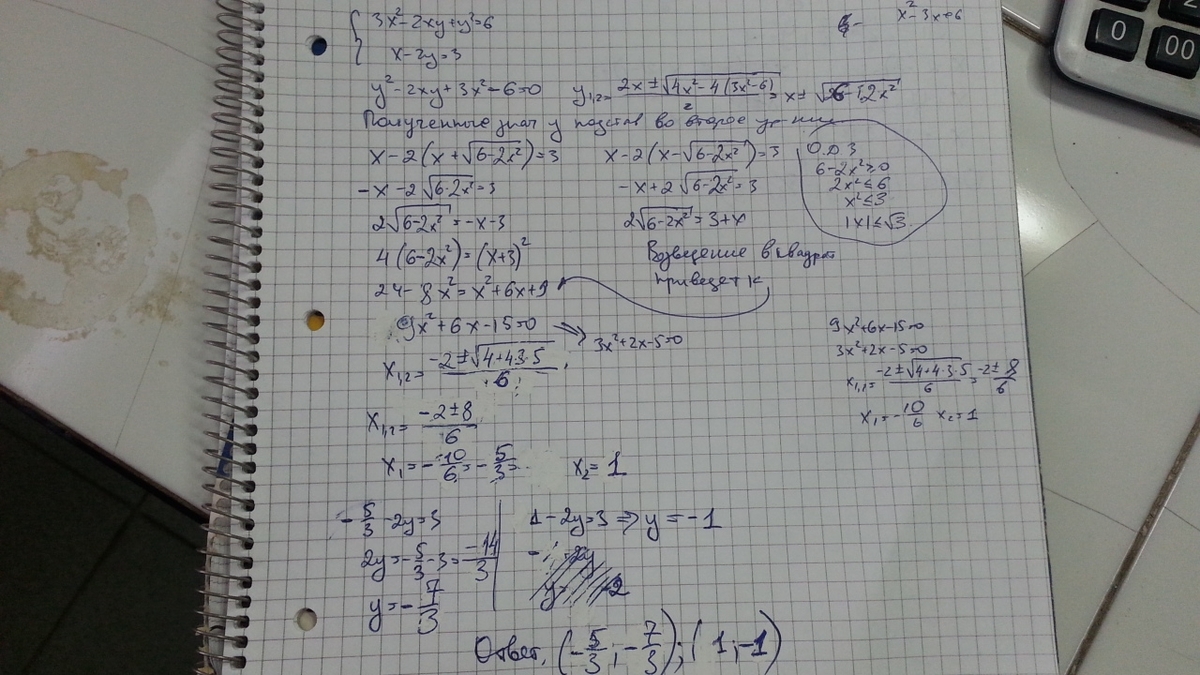 3x²-2xy+y²=6
x-2y=3
x²-3x+6
y²-2xy+3x²-6=0 y₁,₂= (2x±√(4x²-4(3x²-6)))/2 = x±√(6-2x²)
Полученные знач y подстав во второе
x-2(x+√(6-2x²))=3 x-2(x-√(6-2x²))=3
-x-2√(6-2x²)=3 -x+2√(6-2x²)=3
2√(6-2x²)=-x-3 2√(6-2x²)=3+x
ОДЗ
6-2x²≥0
2x²≤6
x²≤3
|x|≤√3
4(6-2x²)=(x+3)²
24-8x²=x²+6x+9
Возведение в квадрат
приведет к
9x²+6x-15=0 ⇒ 3x²+2x-5=0
x₁,₂= (-2±√(4+4·3·5))/6
x₁,₂= (-2±8)/6
x₁=-10/6=-5/3= x₂=1
9x²+6x-15=0
3x²+2x-5=0
x₁,₂= (-2±√(4+4·3·5))/6 = (-2±8)/6
x₁=-10/6 x₂=1
-5/3-2y=3 1-2y=3 ⇒ y=-1
2y=-5/3-3=-14/3
y=-7/3
Ответ, (-5/3;-7/3);(1;-1)
0
00